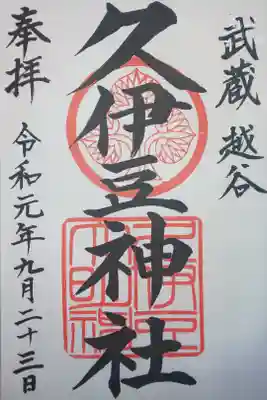 武蔵 越谷
久伊豆神社
奉拝
令和元年九月二十三日